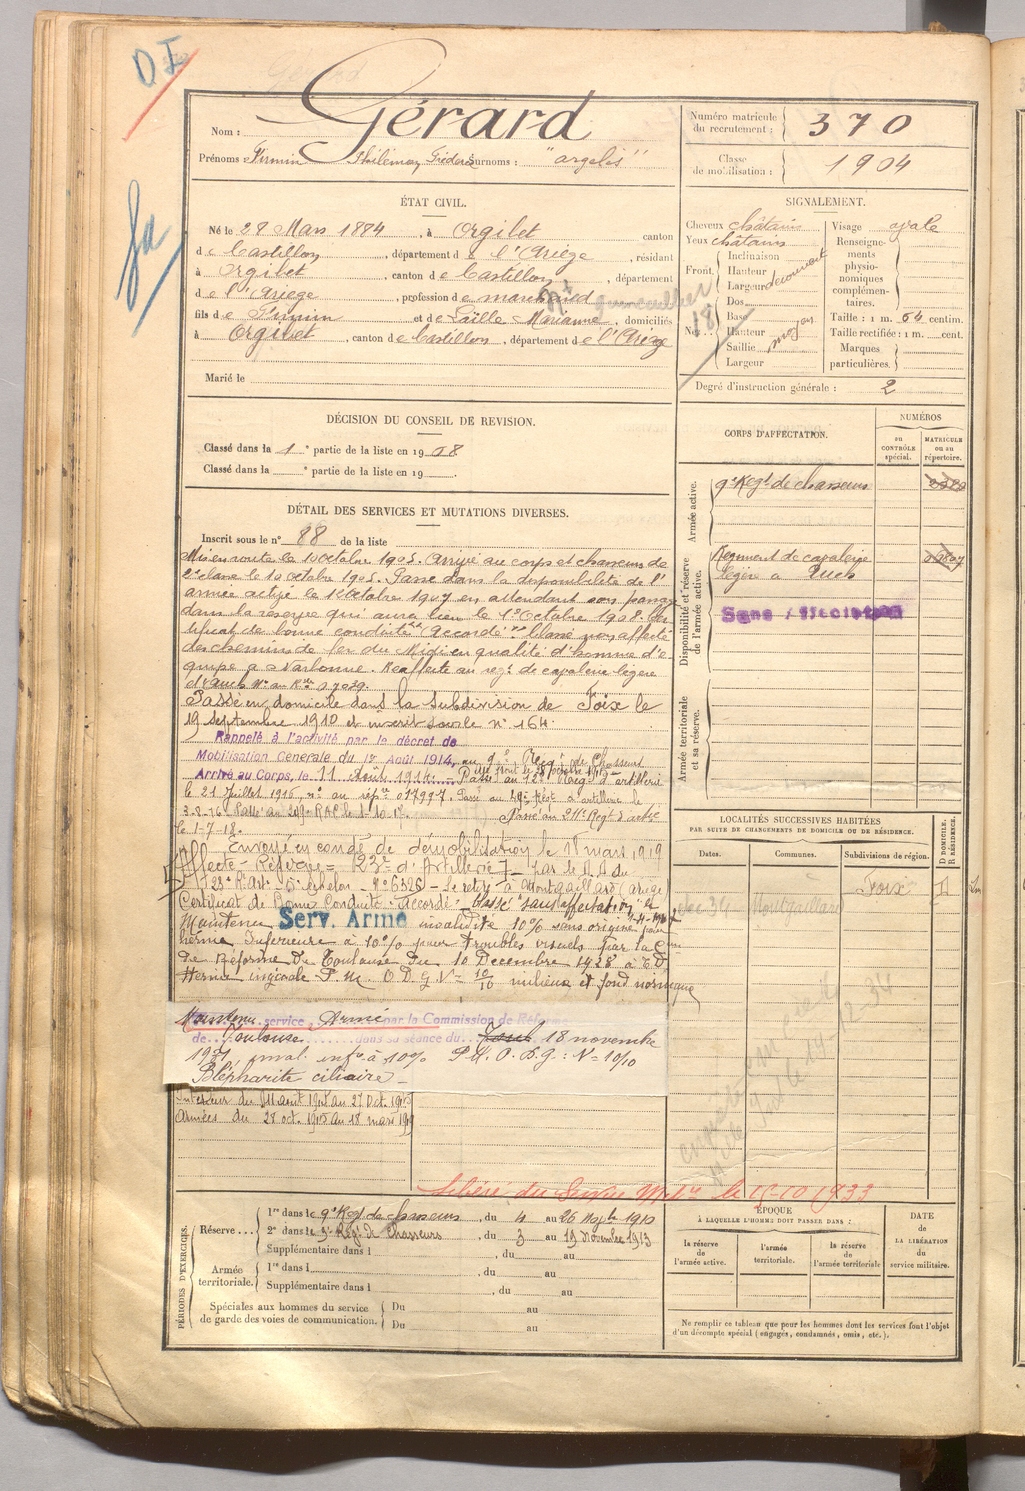 D I
Nom : Gérard
Prénoms : Firmin Philémon Surnoms : "argelis"
Numéro matricule du recrutement : 370
Classe de mobilisation : 1904
ÉTAT CIVIL.
Né le 28 Mars 1884, à Orgibet canton
de Castillon, département de l'Ariège, résidant
à Orgibet, canton de Castillon, département
de l'Ariège, profession de marchand quincaillier
fils de Firmin et de Marianne, domiciliés
à Orgibet, canton de Castillon, département de l'Ariège
Marié le
SIGNALEMENT.
Cheveux châtains
Yeux châtains
Front. Inclinaison
Hauteur
Largeur découvert
Nez. Dos
Base
Hauteur moy.
Saillie
Largeur
Visage ovale
Renseignements physionomiques complémentaires.
Taille : 1 m. 64 centim.
Taille rectifiée : 1 m. cent.
Marques particulières.
Degré d'instruction générale : 2
DÉCISION DU CONSEIL DE REVISION.
Classé dans la 1e partie de la liste en 1908
Classé dans la e partie de la liste en 19
DÉTAIL DES SERVICES ET MUTATIONS DIVERSES.
Inscrit sous le n° 88 de la liste
Mis en route le 10 octobre 1905. Arrivé au corps et chasseur de
2e classe le 10 octobre 1905. Passé dans la disponibilité de l'
armée active le 1er Octobre 1907 en attendant son passage
dans la réserve qui aura lieu le 1er Octobre 1908.
de bonne conduite accordé. Classé non affecté
des chemins de fer du Midi en qualité d'homme d'é-
quipe à Narbonne. Réaffecté au régt de cavalerie légère
d'Auch
Passé en domicile dans la Subdivision de Foix le
19 Septembre 1910 et inscrit sous le n° 164.
Rappelé à l'activité par le décret de
Mobilisation Générale du 1er Août 1914, au 9e Rég. de Chasseurs
Arrivé au Corps, le 11 Août 1914. Passé au artillerie
le 21 Juillet 1916
3-8-16 Passé au Passé au 211e Régt d'artie
le 1-7-18.
Envoyé en congé de démobilisation le 18 mars 1919
Affecté - Réserve = 23e d'Artillerie
Se retire à Montgaillard (Ariège
Certificat de Bonne Conduite : Accordé - Classé "sans affectation"
Maintenu Serv. Armé invalidité 10% sans origine pour
hernie Inférieure à 10% pour troubles visuels par la Com
de Réforme de Toulouse du 10 Décembre 1928
Hernie inguinale P. M. O D. G. V = 10/10 milieux et fond normaux
Maintenu service Armé par la Commission de Réforme
de Toulouse dans sa séance du 18 novembre
inval. infre à 10% O. D. G : V = 10/10
Blépharite ciliaire -
Intérieur du 11 août au 27 Oct. 1915
Armées du 28 oct. 1915 au 18 mars 1919
Libéré du Service Militre le 15-10-1933
CORPS D'AFFECTATION.
NUMÉROS
au CONTRÔLE spécial.
MATRICULE ou au répertoire.
Armée active.
9e Régt de chasseurs
Disponibilité et réserve de l'armée active.
Régiment de cavalerie
légère à Auch
Sans Affectation
Armée territoriale et sa réserve.
LOCALITÉS SUCCESSIVES HABITÉES
PAR SUITE DE CHANGEMENTS DE DOMICILE OU DE RÉSIDENCE.
Dates.
Communes.
Subdivisions de région.
D DOMICILE. R RÉSIDENCE.
Foix
Montgaillard
PÉRIODES D'EXERCICES.
Réserve...
1re dans le 9e Régt de chasseurs, du 4 au 26 Sepbre 1910
2e dans le 9e Régt de Chasseurs, du 3 au 19 Novembre 1913
Supplémentaire dans l , du au
Armée territoriale.
1re dans l , du au
Supplémentaire dans l , du au
Spéciales aux hommes du service de garde des voies de communication.
Du au
Du au
ÉPOQUE
À LAQUELLE L'HOMME DOIT PASSER DANS :
la réserve de l'armée active.
l'armée territoriale.
la réserve de l'armée territoriale
DATE de LA LIBÉRATION du service militaire.
Ne remplir ce tableau que pour les hommes dont les services font l'objet
d'un décompte spécial (engagés, condamnés, omis, etc.).